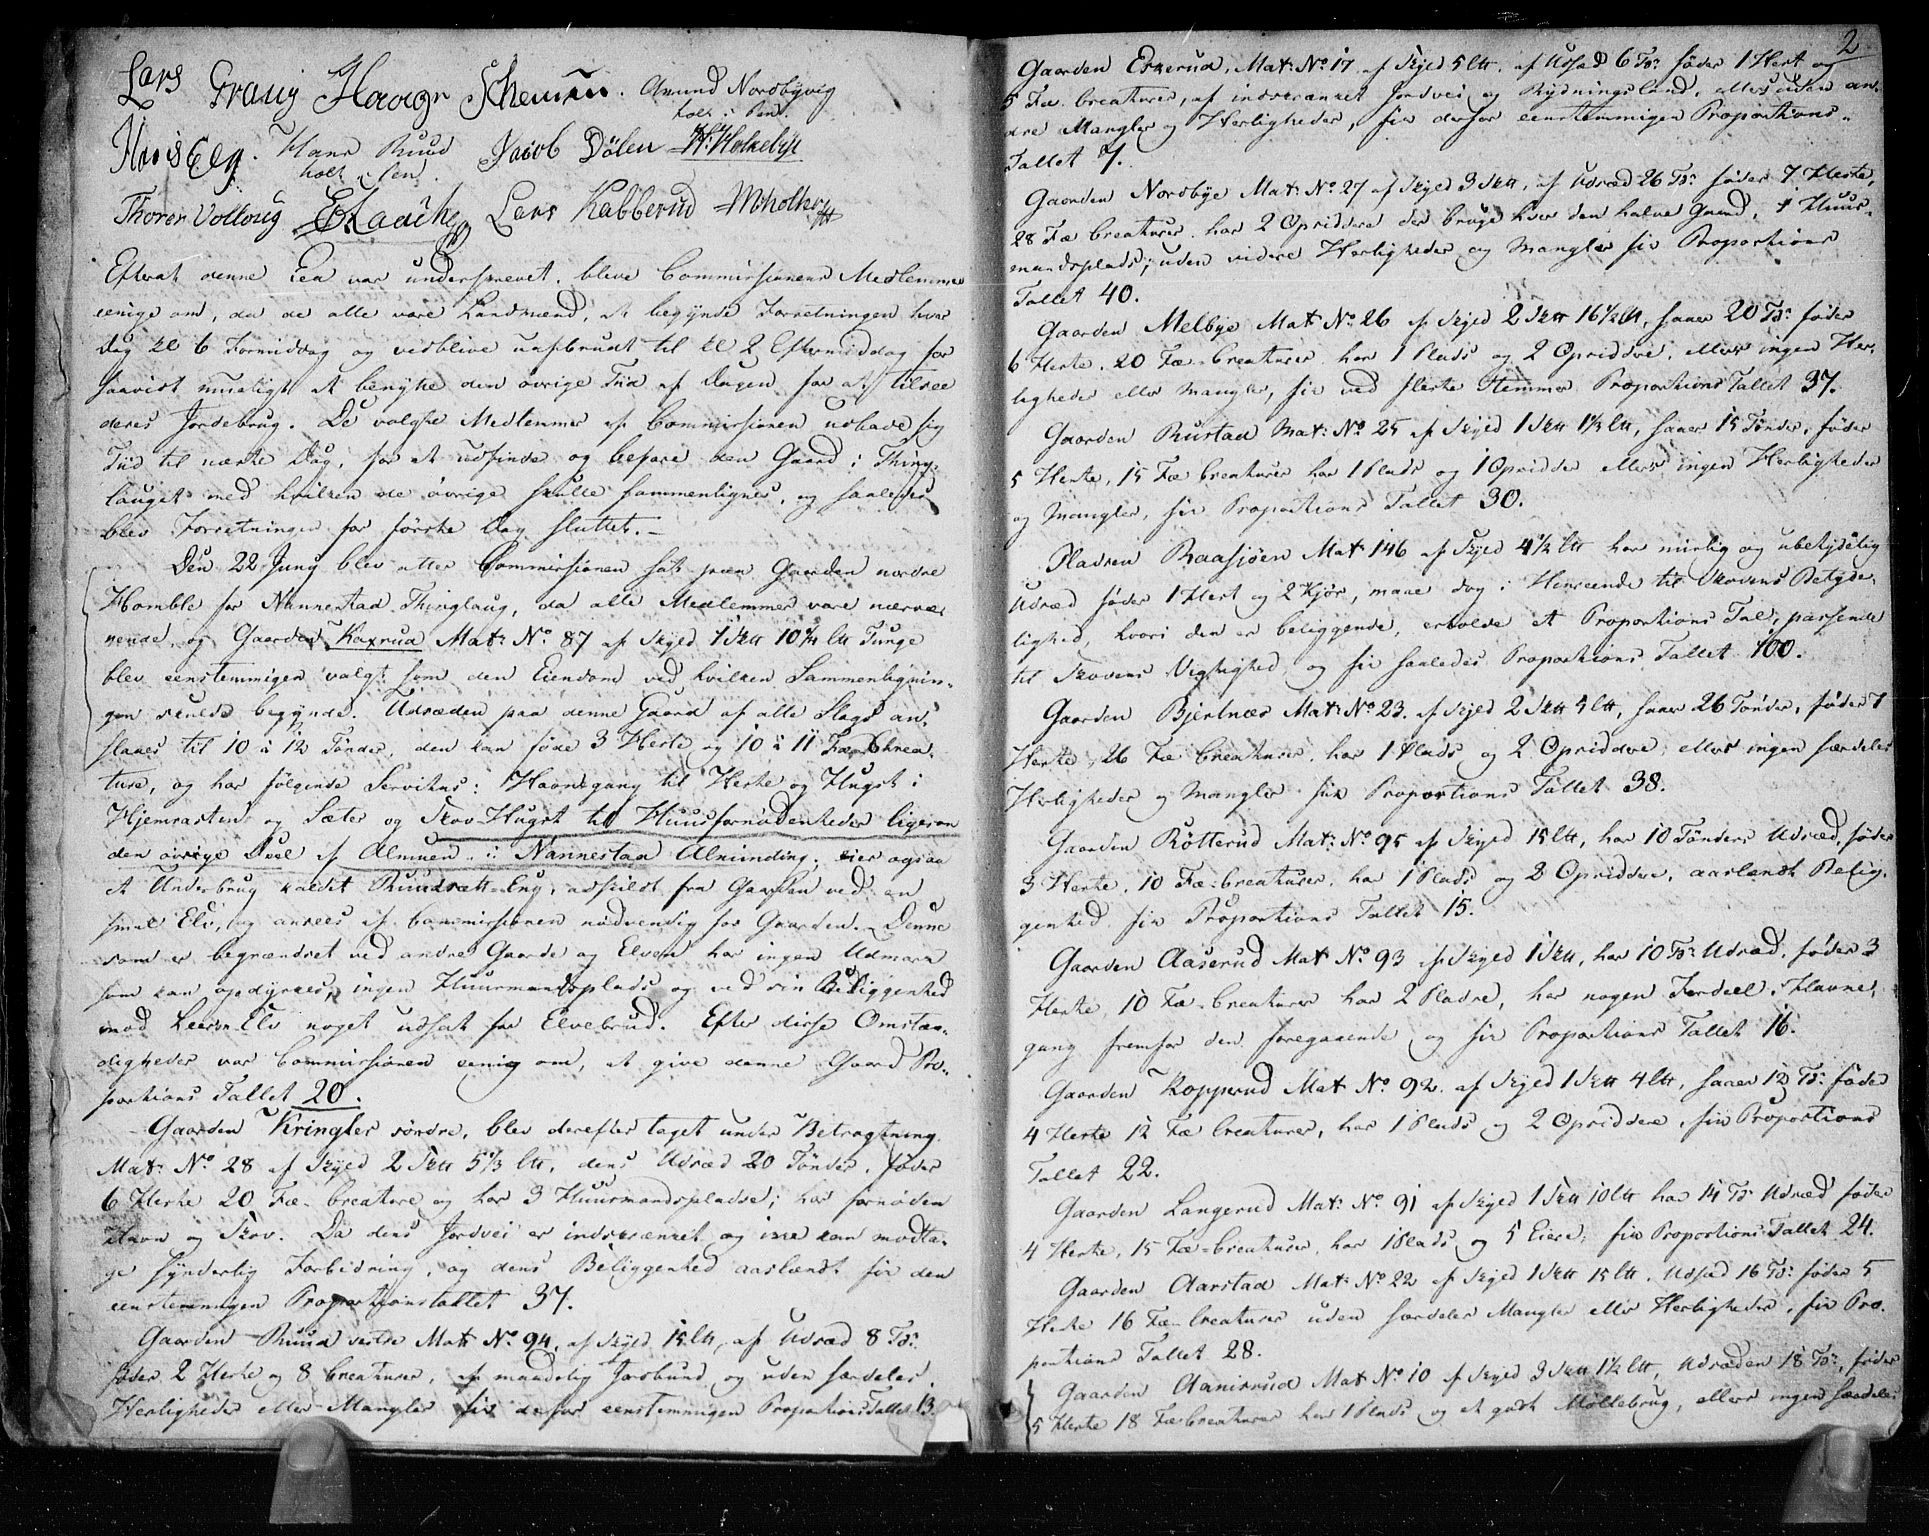 Lars Grani Haagr Schenin. Amund Nordbyvig
holt i Pen.
Hans Ruud Jacob Dølen H: Holkebye
holt i Pen.
Thorer Vollaug Lars Kabberud
Efterat denne Eed var underskrevet, bleve Commissionens Medlemmer
eenige om, da de alle vare Landmænd, at begynde Forretningen hver
Dag Kl 6 Formiddag og vedblive uafbrudt til Kl 2 Eftermiddag for
saavidt mueligt at benytte den øvrige Tiid af Dagen for at tilsee
deres Jordebrug. De valgte Medlemmer af Commissionen udbade sig
Tiid til næste Dag, for at udfinde og befare den Gaard i Thing-
lauget med hvilken de øvrige skulle sammenlignes, og saaledes
blev Forretningen for første Dag sluttet.-
Den 22 Juny blev atter Commissionen sat paa Gaarden nordre
Homble for Nannestad Thinglaug, da alle Medlemmer vare nærvæ-
rende, og Gaarden Kaxrud Mat: No. 87 af Skyld 1 Sktt 10 3/4 Ltt Tunge
blev eenstemmigen valgt som den Eiendom ved hvilken Sammenlignin-
gen skulde begynde. Udsæden paa denne Gaard af alle Slags an-
slaaes til 10 à 12 Tønder, den kan føde 3 Heste og 10 à 11 Fæ-Crea-
ture, og har følgende Servitus: Havnegang til Heste og Hugst i
Hjemrasten og Sæter og Skov-Hugst til Huusfornødenheder ligesom
den øvrige Deel af Almuen i Nannestad Alminding, eier ogsaa
et Underbrug kaldet Ruudsætt-Eng, adskildt fra Gaarden ved en
smal Elv, og ansees af Commissionen nødvendig for Gaarden. Denne
som er begrændset ved andre Gaarde og Elven har ingen Udmark
som kan opdyrkes, ingen Huusmandsplads og ved sin Beliggenhed
mod Leeren Elv noget udsat for Elvebrud. Efter disse Omstæn-
digheder var Commissionen eenig om, at give denne Gaard Pro-
portions Tallet 20.
Gaarden Kringler søndre, blev derefter taget under Betragtning.
Mat: No. 28 af Skyld 2 Sktt 5 1/3 Ltt, dens Udsæd 20 Tønder, føder
6 Heste 20 Fæ-Creature og har 3 Huusmandspladse; har fornøden
Havn og Skov. Da dens Jordvei er indskrænket og ikke kan modta-
ge synderlig Forbedring, og dens Beliggenhed aaslændt fik den
eenstemmigen Proportionstallet 37.
Gaarden Ruud vestre Mat No. 94, af Skyld 15 Ltt, af Udsæd 8 Tdr
føder 2 Heste og 8 Creaturer, af maadelig Jordbund og uden særdeles
Herligheder eller Mangler fik derfor eenstemmigen Proportions Tallet 13.
2.
Gaarden Eskerud, Mat: No. 17 af Skyld 5 Ltt. af Udsæd 6 Tdr føder 1 Hest og
5 Fæ-Creaturer, af indskrænket Jordvei og Rydningsland, ellers uden an-
dre Mangler og Herligheder, fik derfor eenstemmigen Proportions-
Tallet 7.
Gaarden Nordbye Mat: No. 27 af Skyld 3 Sktt, af Udsæd 26 Tdr føder 7 Heste,
28 Fæ Creaturer, har 2 Opsiddere der bruge hver den halve Gaard, 1 Huus-
mandsplads; uden videre Herligheder og Mangler fik Proportions
Tallet 40.
Gaarden Melbye Mat No. 26 af Skyld 2 Sktt 16 1/2 Ltt, saaer 20 Tdr føder
6 Heste, 20 Fæ-Creaturer har 1 Plads og 2 Opsiddere, ellers ingen Her-
ligheder eller Mangler, fik ved fleste Stemmer Proportions Tallet 37.
Gaarden Rustad Mat: No. 25 af Skyld 1 Sktt 1 1/2 Ltt, saaer 15 Tønder, føder
5 Heste, 15 Fæ Creaturer har 1 Plads og 1 Opsidder ellers ingen Herligheder
og Mangler, fik Proportions Tallet 30.
Pladsen Raasjøen Mat 146 af Skyld 4 1/2 Ltt har mislig og ubetydelig
Udsæd føder 1 Hest og 2 Kjør, maae dog i Henseende til Skovens Betyde-
lighed hvori den er beliggende, erholde et Proportions Tal, passende
til Skovens Vigtighed og fik saaledes Proportions Tallet 100.
Gaarden Bjertnæs Mat: No. 23. af Skyld 2 Sktt 4 Ltt, saaer 26 Tønder, føder 7
Heste, 26 Fæ Creaturer, har 1 Plads og 2 Opsiddere, ellers ingen særdeles
Herligheder og Mangler fik Proportions Tallet 38.
Gaarden Røtterud Mat: No. 95 af Skyld 15 Ltt, har 10 Tønders Udsæd, føder
3 Heste, 10 Fæ-Creaturer, har 1 Plads og 2 Opsiddere, aaslændt Belig-
genhed fik Proportions Tallet 15.
Gaarden Aaserud Mat No. 93 af Skyld 1 Sktt, har 10 Tdr Udsæd, føder 3
Heste, 10 Fæ-Creaturer har 2 Pladse, har nogen Fordeel i Havne-
gang fremfor den foregaaende og fik Proportions Tallet 16.
Gaarden Kopperud Mat No. 92. af Skyld 1 Sktt 4 Ltt, saaer 12 Tdr føder
4 Heste 12 Fæ Creaturer, har 1 Plads og 2 Opsiddere, fik Proportions
Tallet 22.
Gaarden Langerud Mat: No. 91 af Skyld 1 Sktt 10 Ltt har 14 Tdr Udsæd føder
4 Heste, 15 Fæ-Creaturer, har 1 Plads og 5 Eiere; fik Proportions Tallet 24.
Gaarden Aarstad Mat: No. 22 af Skyld 1 Sktt 15 Ltt, Udsæd 16 Tdr føder 5
Heste 16 Fæ-Creaturer uden særdeles Mangler eller Herligheder, fik Pro-
portions Tallet 28.
Gaarden Aanisrud Mat No. 10 af Skyld 3 Sktt 1 1/2 Ltt, Udsæden 18 Tdr, føder
5 Heste 18 Fæ-Creaturer har 1 Plads og et godt Møllebrug, ellers ingen særdeles